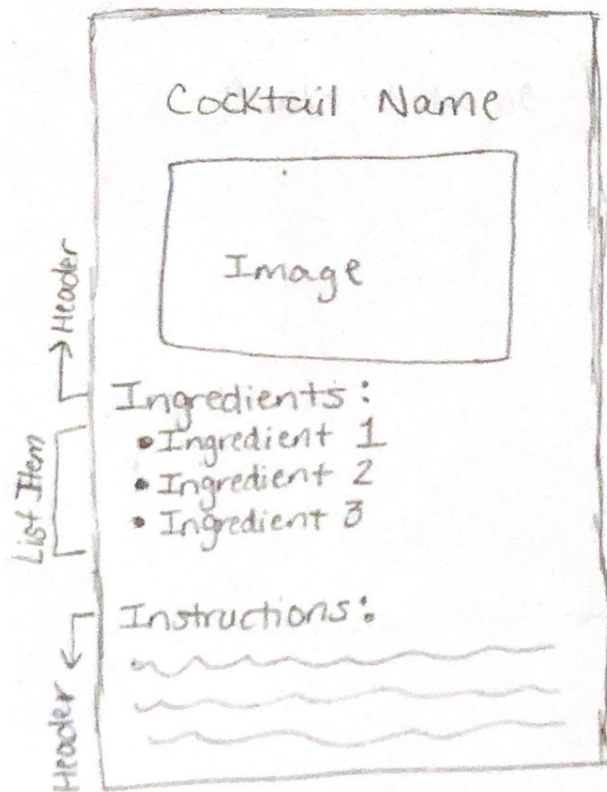 Cocktail Name
Image
Header
Ingredients:
• Ingredient 1
• Ingredient 2
• Ingredient 3
List Item
Instructions:
Header